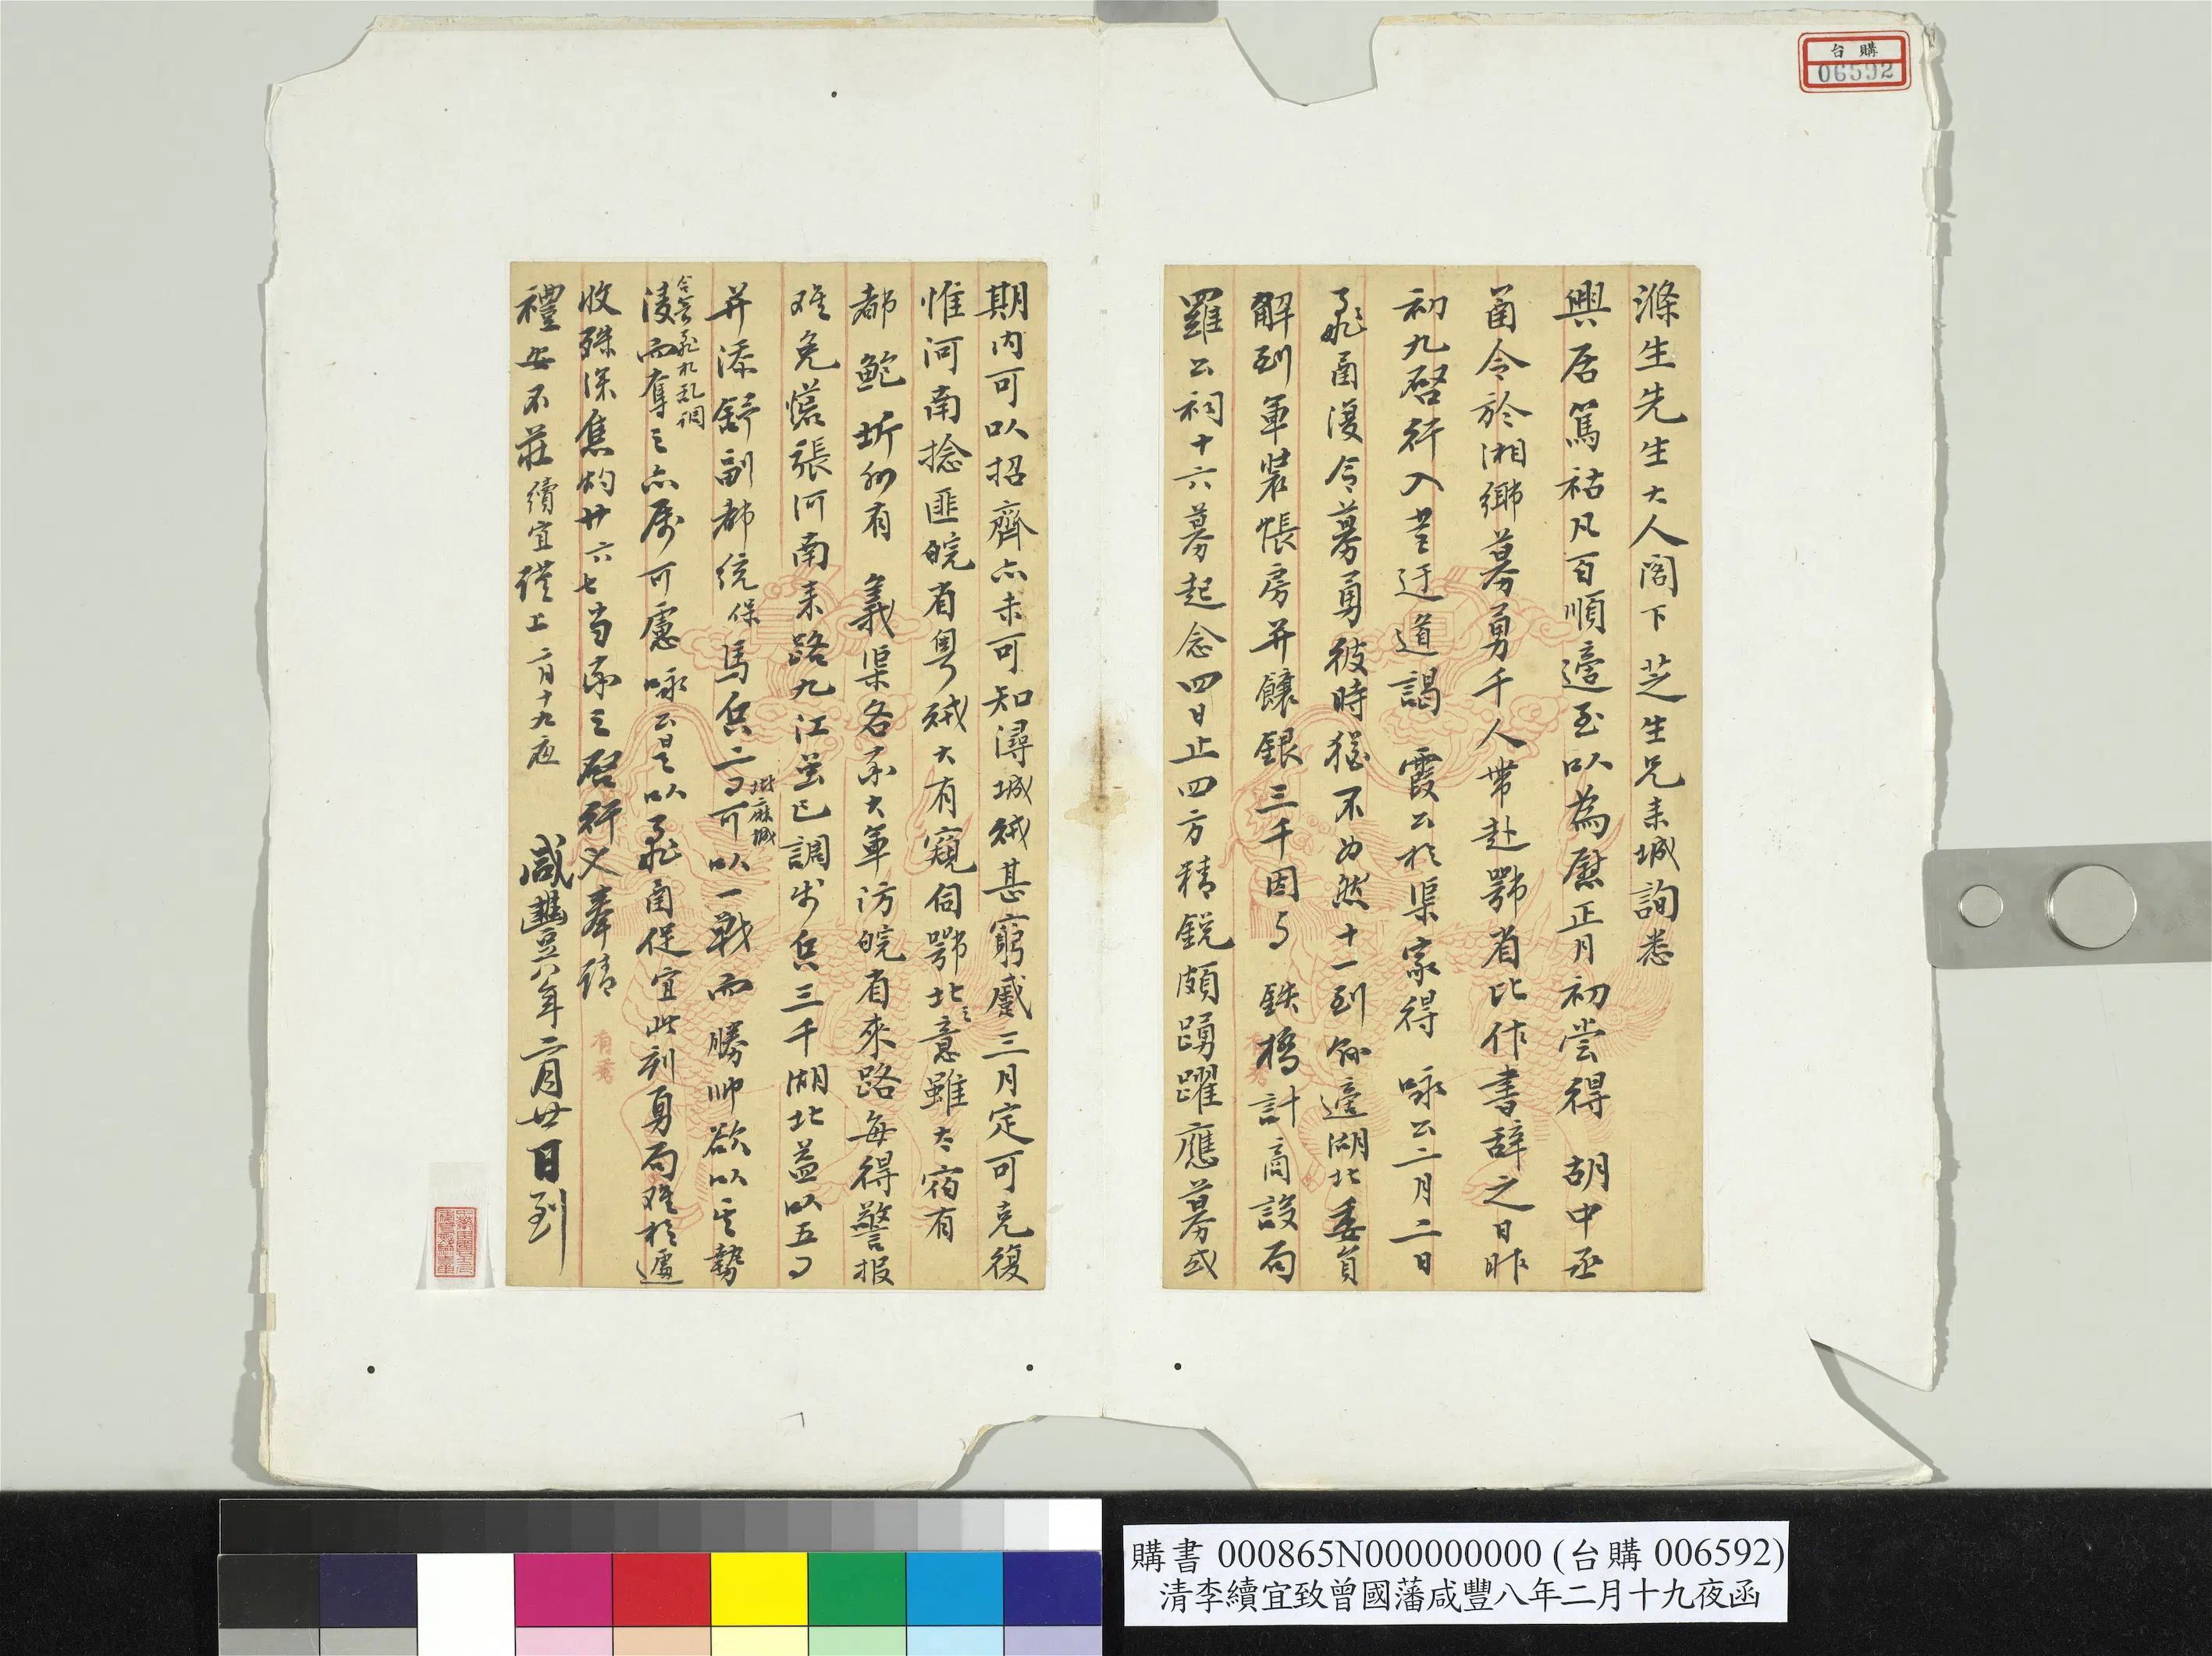 台購
06592
滌生先生大人閣下芝生兄來城詢悉
興居篤祜凡百順適至以為慰正月初嘗得 胡中丞
函令於湘鄉募勇千人帶赴鄂省比作書辭之日昨
初九啓行入 迂道謁 霞公於渠家得 詠公二月二日
飛函復令募勇彼時猶不為然十一到 適湖北委員
解到軍裝帳房并餉銀三千因與 鐵橋計商設局
羅公祠十六募起念四日止四方精銳頗踴躍應募或
期内可以招齊亦未可知潯城賊甚窮蹙三月定可克復
惟河南捻匪皖省粤賊大有窺伺鄂北之意雖太宿有
都 鮑 圻州有 義渠各南大軍訪皖省來路每得警报
难免慌張河南來路九江虽已調步兵三千湖北益以五百
并添舒副都統保馬兵二百可以一戰而勝帅欲以全勢
駐麻城
凌而奪之亦屬可慮詠公是以飛函促宜此刻勇局难於遽
收殊深焦灼廿六七当南之啓行又奉請
禮安不莊續宜謹上二月十九夜
咸豐八年二月廿日到
購書 000865N000000000 (台購 006592)
清李續宜致曾國藩咸豐八年二月十九夜函